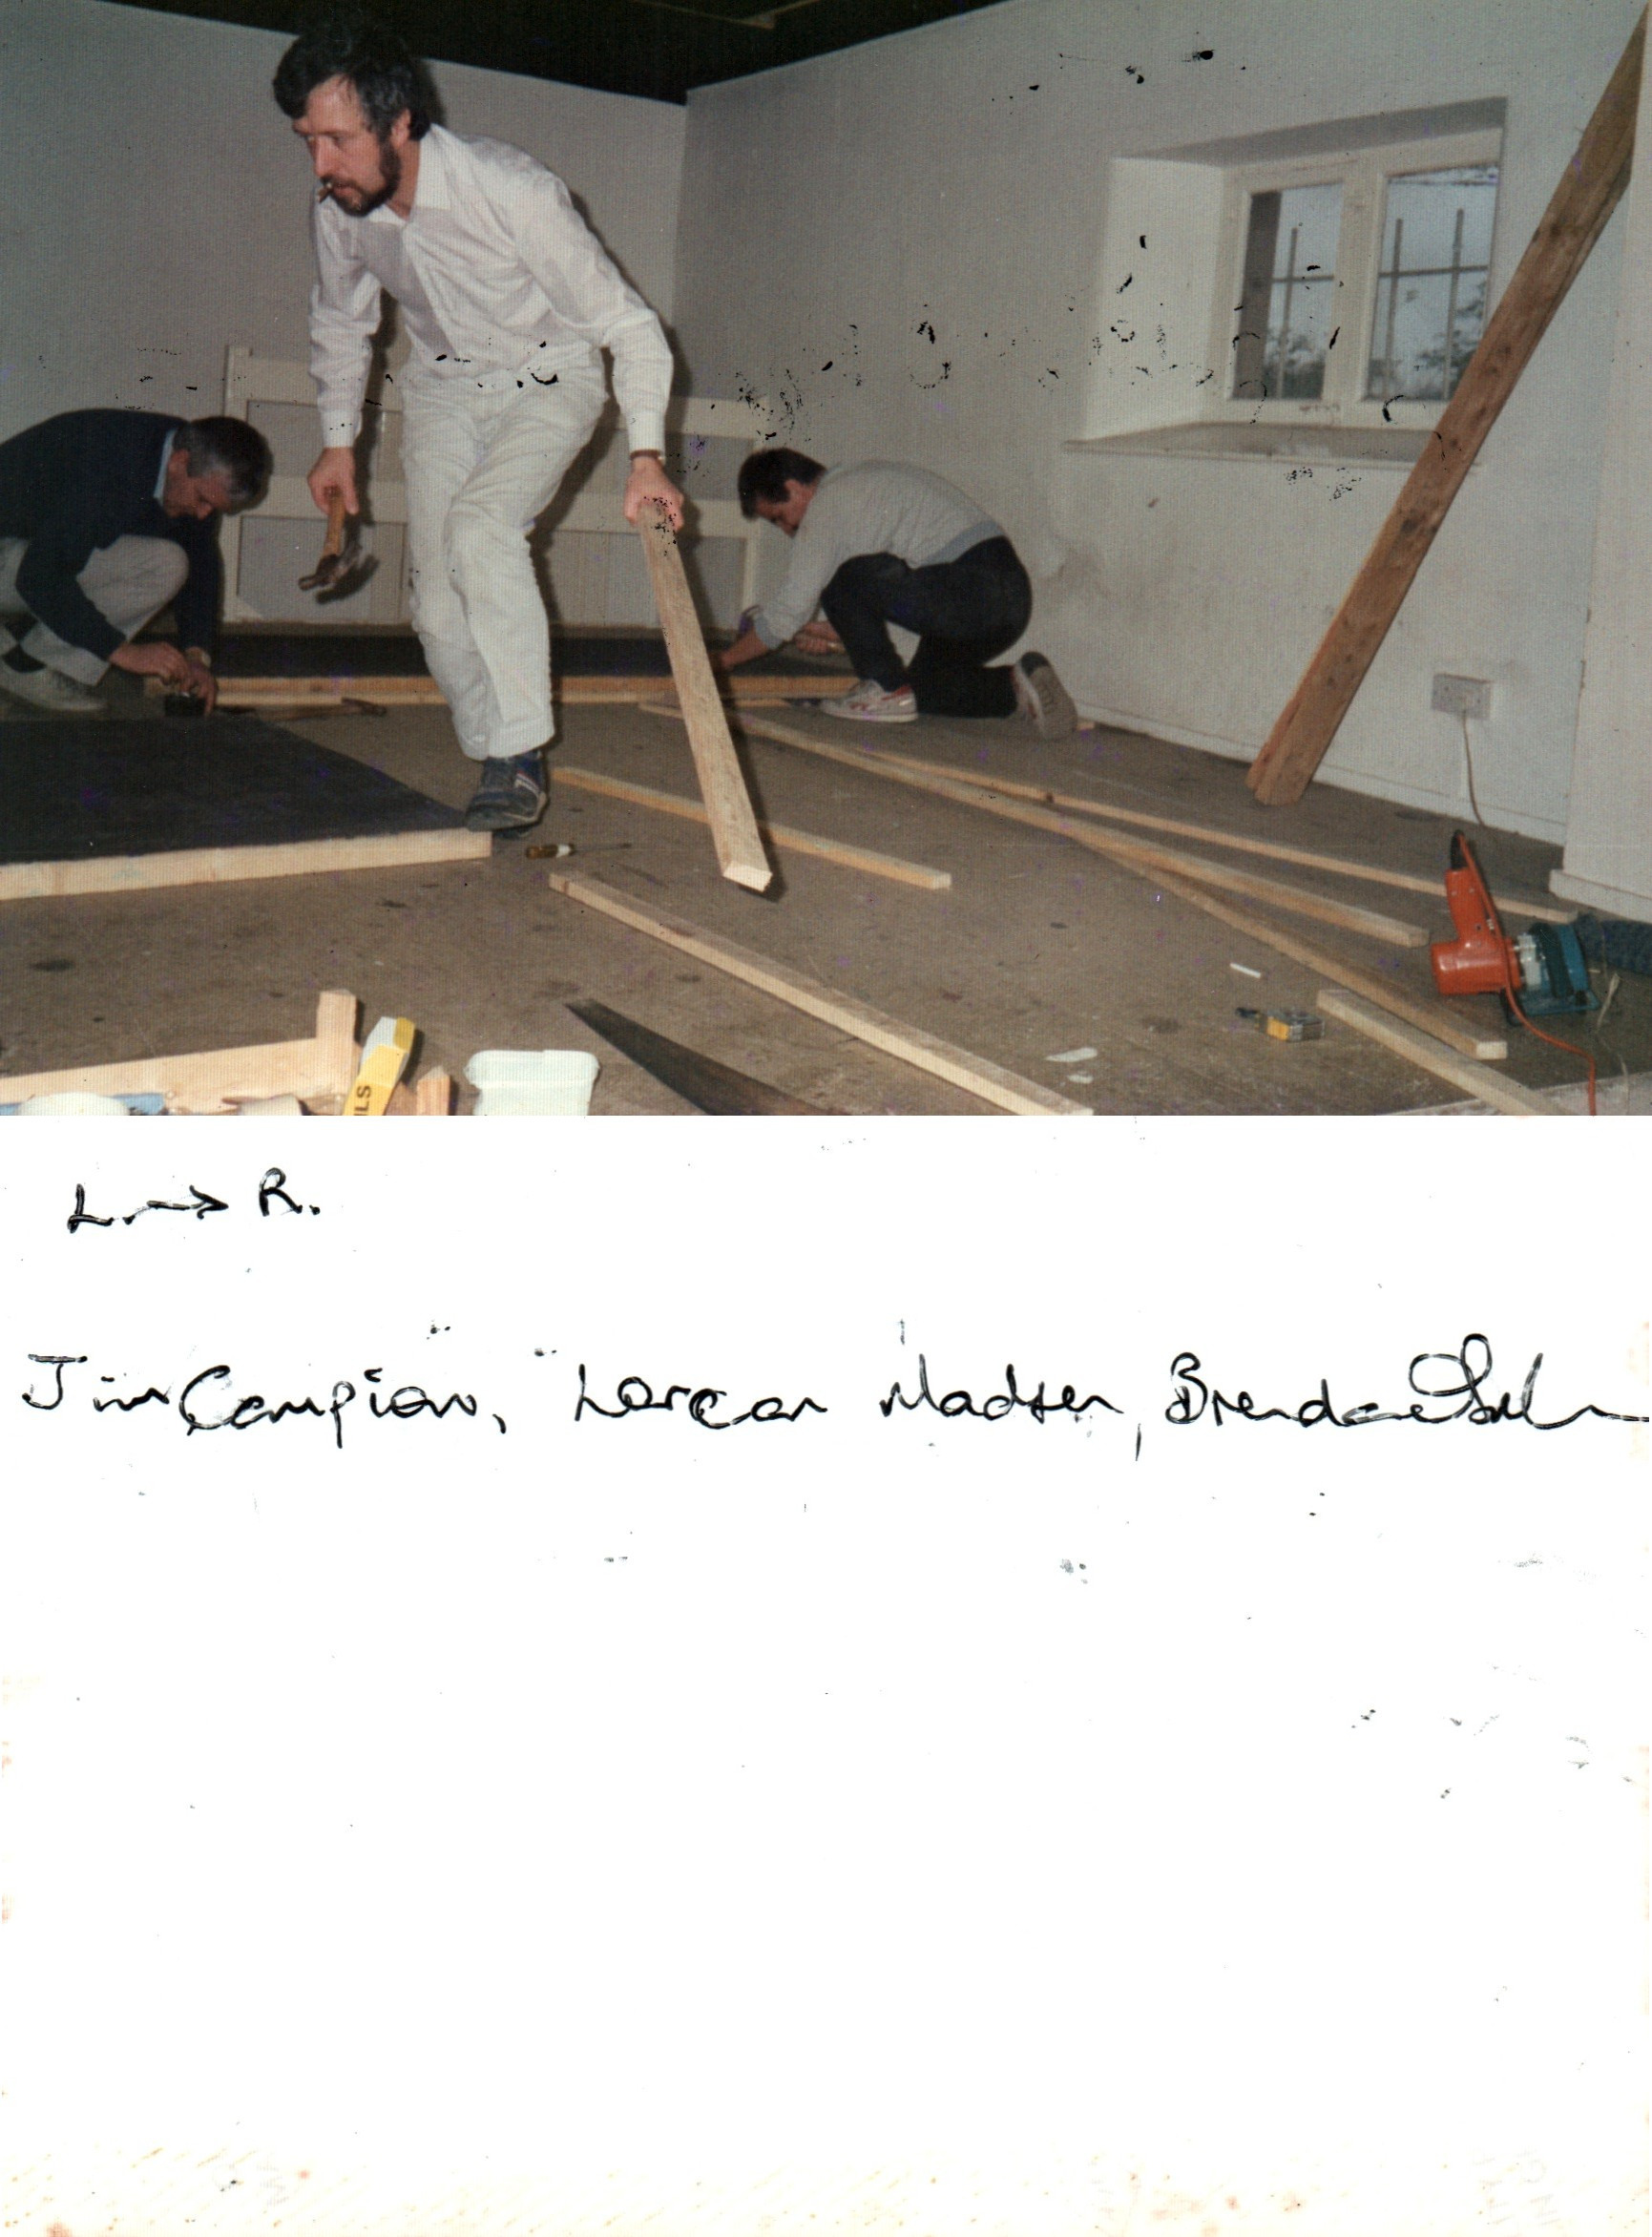 L → R.
Jim Campion, Lorcan Madsen, Brendan